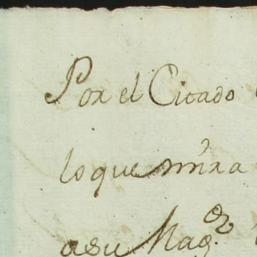 Por el Citado
lo que mira
a su Mag.